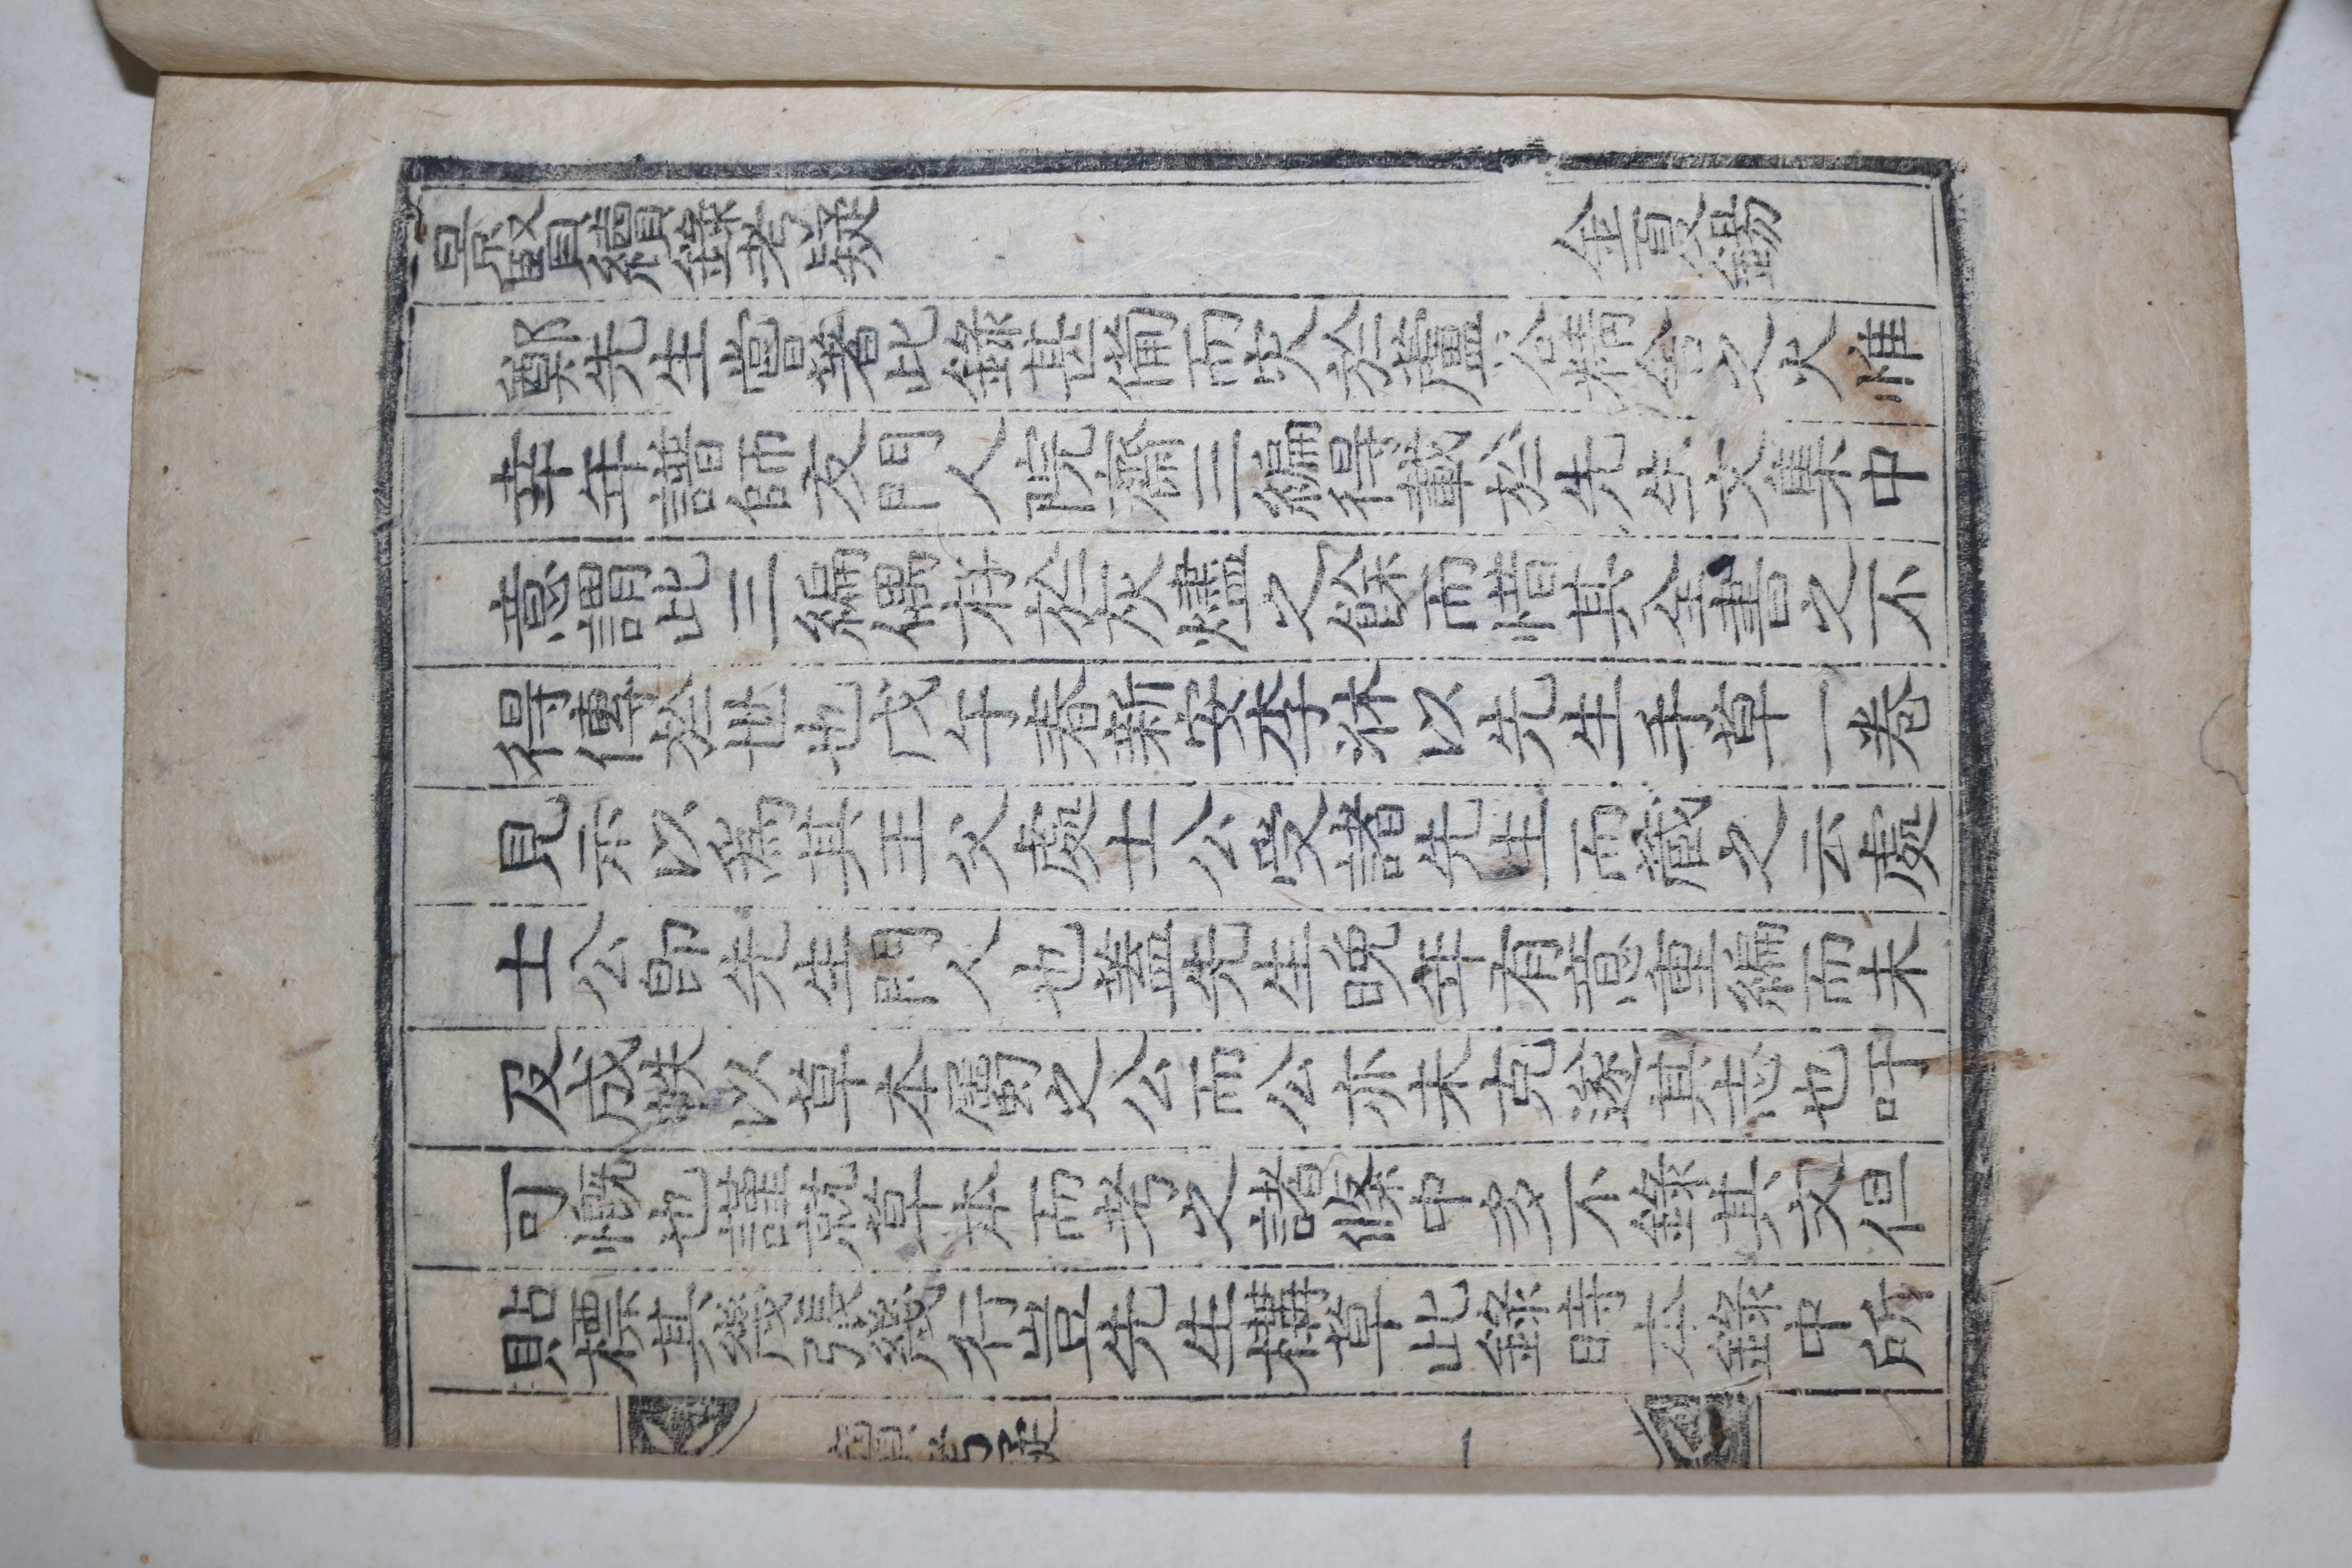 景賢續錄考疑 金夏錫
鄭先生嘗著此錄甚備而灾於蘆谷精舍之火惟
幸年譜師友門人院齋三編得載於先生文集中
意謂此三編偶存於灰燼之餘而惜其全書之不
得傳於世也戊午春新安李沐以先生手草一卷
見示以爲其王父處士公受諸先生而藏之云處
士公卽先生門人也蓋先生晚年有意重編而未
及成帙以草本屬之公而公亦未克遂其志也吁
可慨也謹就草本而考之諸條中多不錄其文但
貼標其幾張幾行豈先生構草此錄時本錄中所
考疑
一